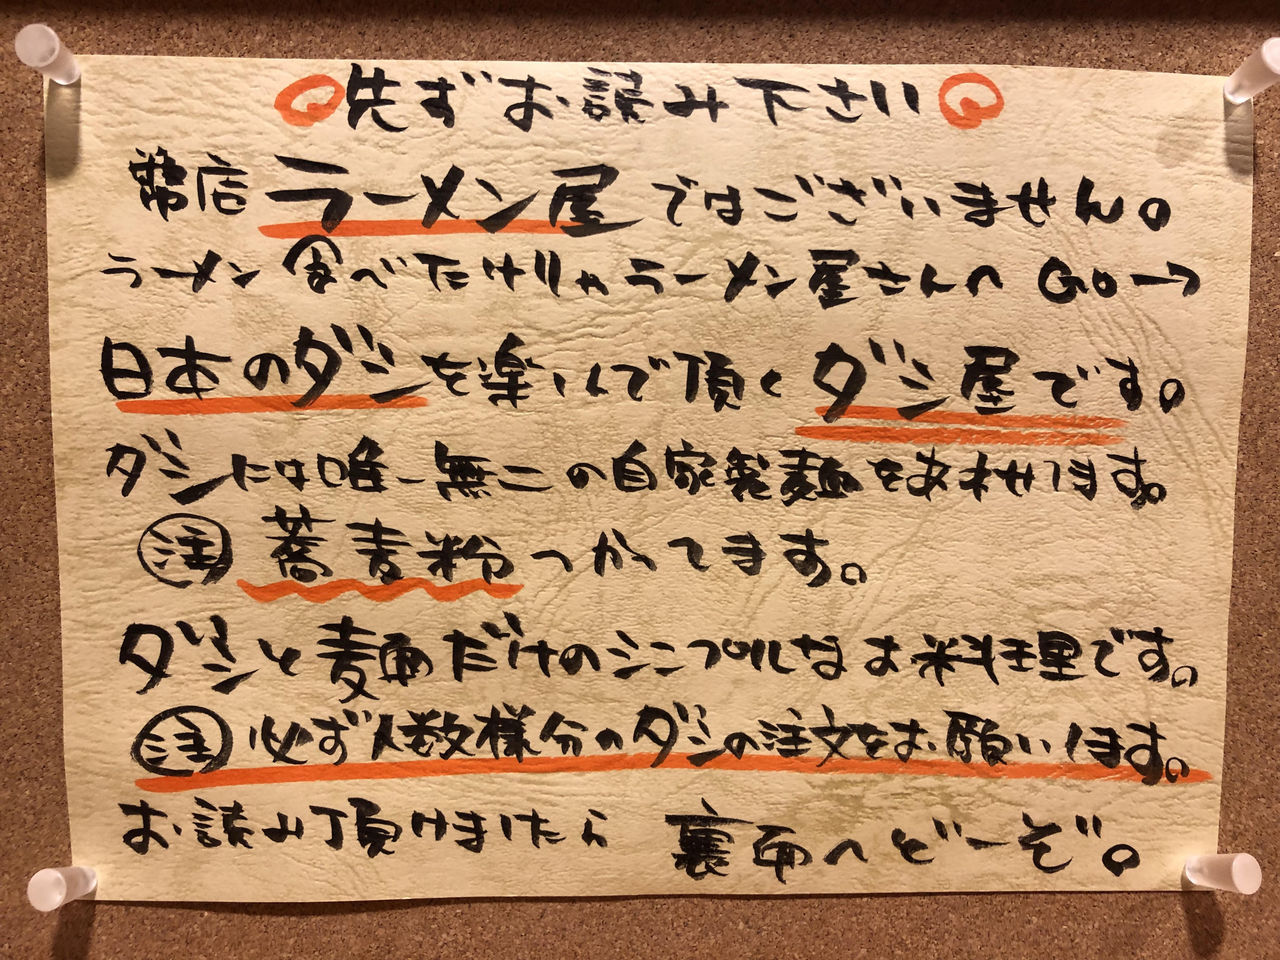 先ずお読み下さい
弊店ラーメン屋ではございません。
ラーメン食べたけりゃラーメン屋さんへGO→
日本のダシを楽しんで頂くダシ屋です。
ダシには唯一無二の自家製麺をあわせてます。
注 蕎麦粉つかってます。
ダシと麺だけのシンプルなお料理です。
注 必ず人数様分のダシの注文をお願いします。
お読み頂けましたら 裏面へどーぞ。